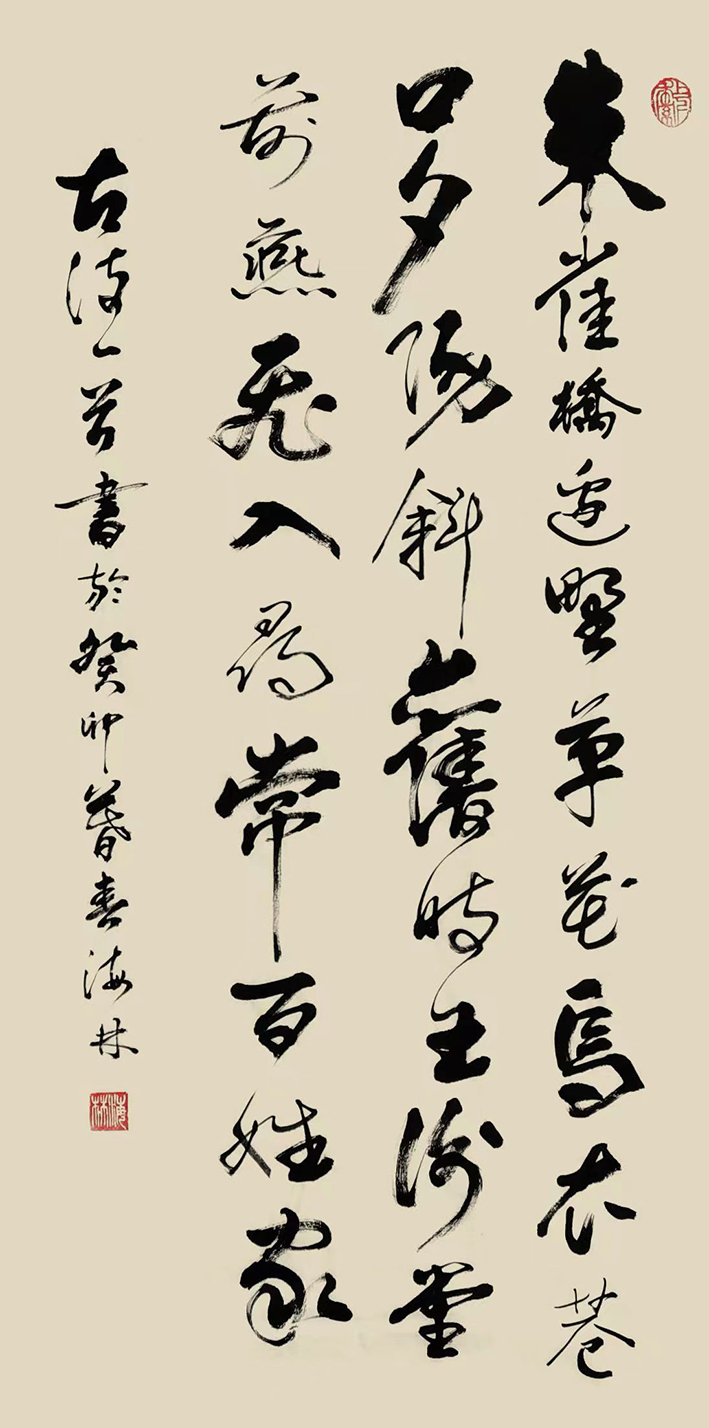 朱雀橋邊野草花烏衣巷
口夕陽斜舊時王謝堂
前燕飛入尋常百姓家
古詩一首書於癸卯暮春海林
海林